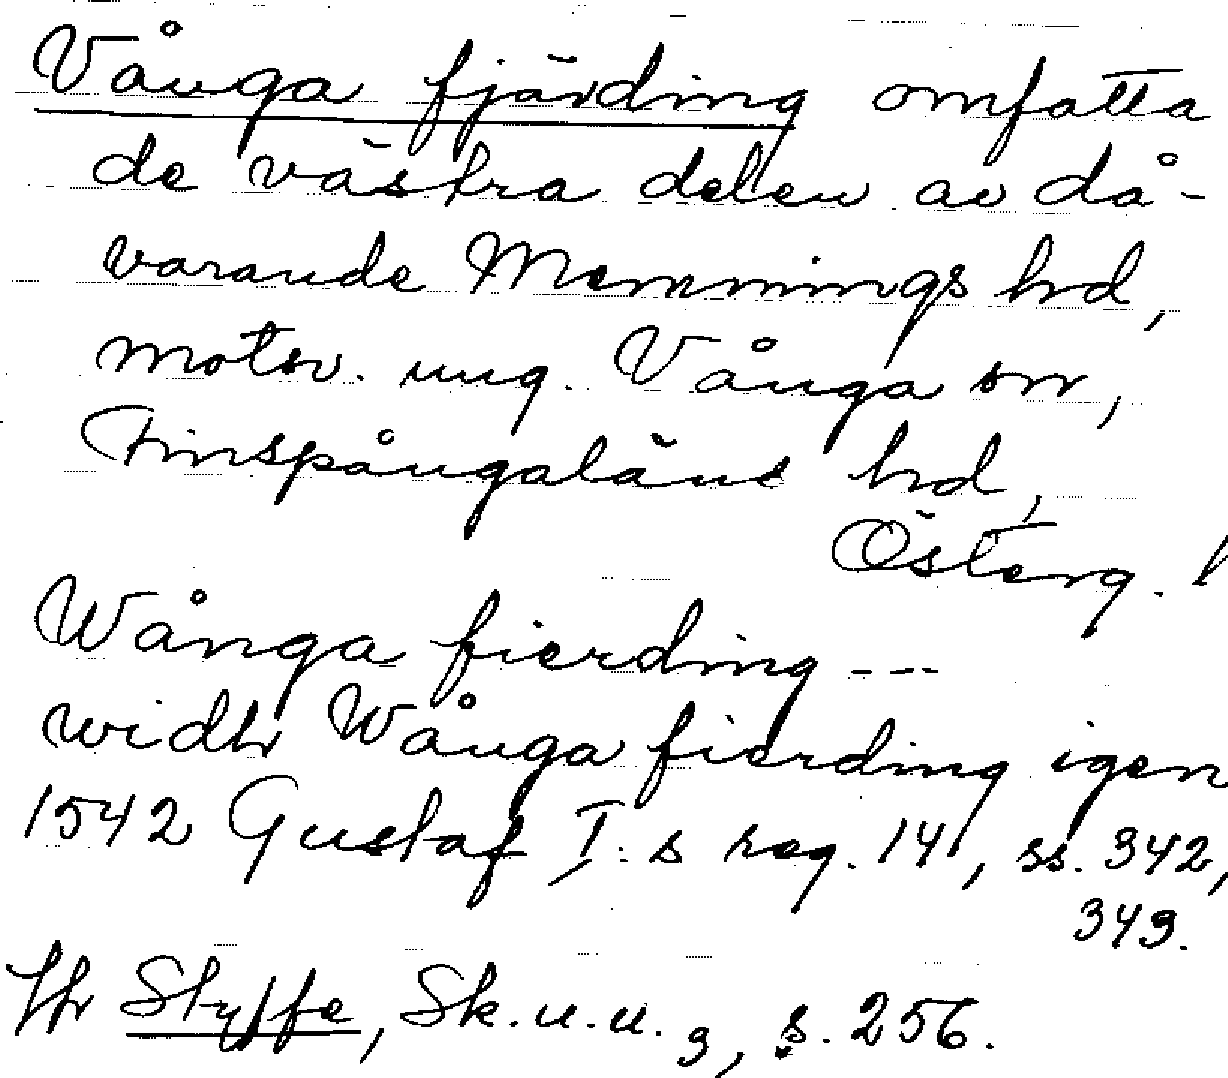 Vånga fjärding omfatta
de västra delen av då-
varande Memmings hrd,
motsv. ung. Vånga sn,
Finspångaläns hrd,
Österg. l
Wånga fierding ---
widh Wånga fierding igen
1542 Gustaf I:s reg. 14, ss. 342,
343.
Jfr Styffe, Sk.u.u. 3, s. 256.